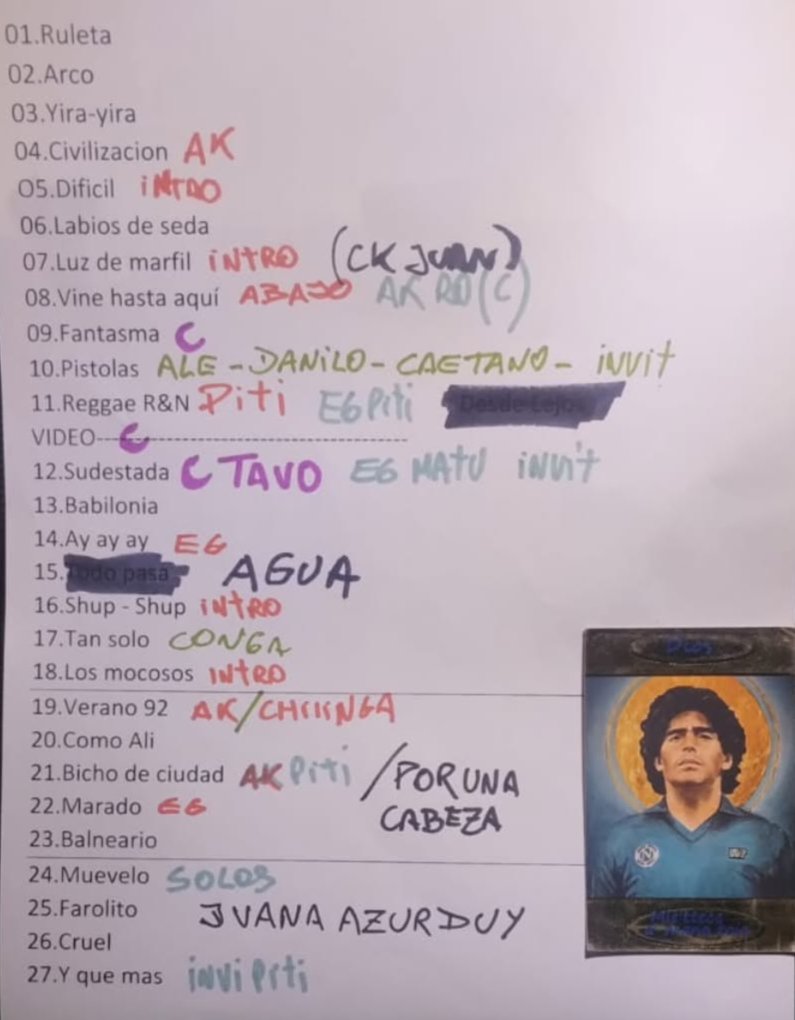 01.Ruleta
02.Arco
03.Yira-yira
04.Civilizacion AK
05.Dificil INTRO
06.Labios de seda
07.Luz de marfil INTRO (CK JUAN)
08.Vine hasta aquí ABAJO AK RD (C)
09.Fantasma C
10.Pistolas ALE - DANILO - CAETANO - INVIT
11.Reggae R&N Piti EG Piti Desde Lejos
VIDEO---C-----------------------------------
12.Sudestada C TAVO EG MATU INVIT
13.Babilonia
14.Ay ay ay EG
15.Todo pasa AGUA
16.Shup - Shup INTRO
17.Tan solo CONGA
18.Los mocosos INTRO
19.Verano 92 AK/
20.Como Ali
21.Bicho de ciudad AK Piti /POR UNA
CABEZA
22.Marado EG
23.Balneario
24.Muevelo SOLOS
25.Farolito JUANA AZURDUY
26.Cruel
27.Y que mas INVI Piti
Dios
N